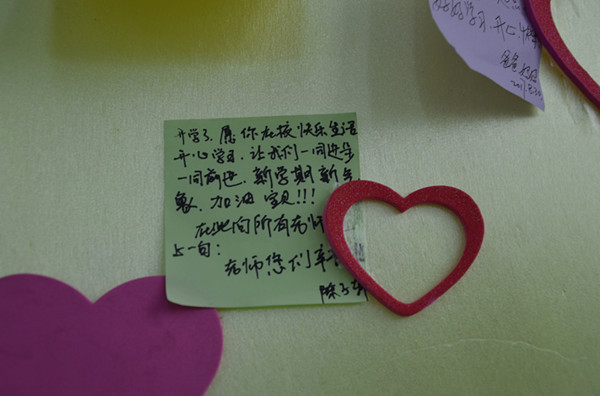 好好学习 开心快
爸爸妈妈
开学了,愿你在校快乐生活
开心学习,让我们一同进步
一同前进,新学期新气
象,加油宝贝!!!
在此向所有老师
上一句:
老师您们辛
陈子